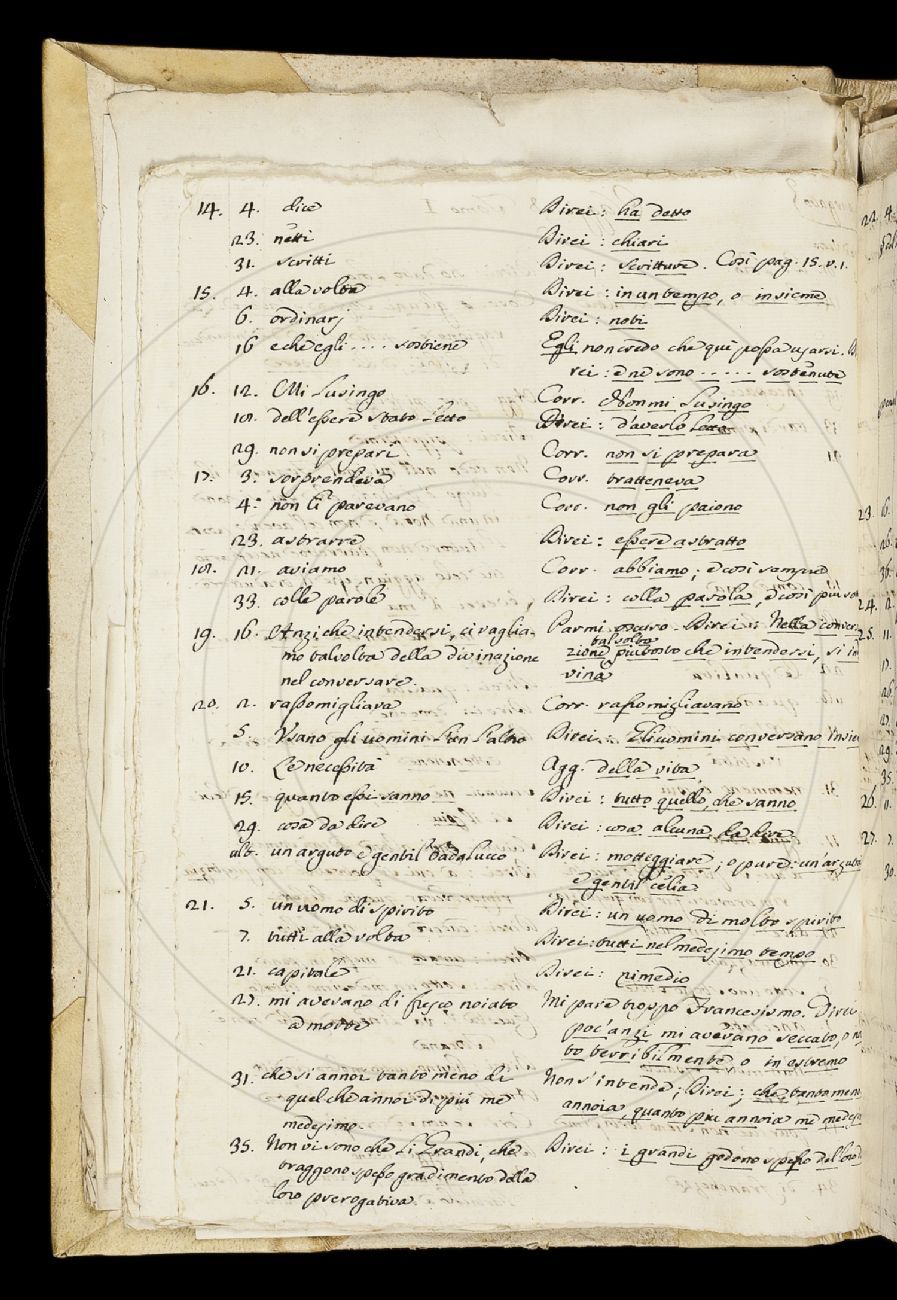 14. 4. dice Direi: ha detto
23. netti Direi: chiari
31. scritti Direi: scritture. Così pag. 15. v. 1.
15. 4. alla volta Direi: in un tempo, o insieme
6. ordinarj Direi: noti
16 e che egli .... sostiene Egli non credo che quì possa usarsi. Di
rei: e ne sono ..... sostenute
16. 12. Mi lusingo Corr. Non mi lusingo
18. dell'essere stato letto Direi: d'averlo letto
29. non si prepari Corr. non si prepara
17. 3. sorprendeva Corr. tratteneva
4. non li parevano Corr. non gli paiono
23. astrarre Direi: essere astratto
18. 21. aviamo Corr. abbiamo; e così sempre
33. colle parole Direi: colla parola, e così più
19. 16. Anzi che intendersi, ci vaglia- Parmi oscuro. Direi: Nella conver
talvolta
mo talvolta della divinazione zione piuttosto che intendersi, si in
nel conversare. vina
20. 2. rassomigliava Corr. rassomigliavano
5. Usano gli uomini l'un l'altro Direi: Gli uomini conversano insie
10. Le necessità Agg. della vita
15. quanto essi sanno Direi: tutto quello, che sanno
29. cosa da dire Direi: cosa alcuna da dire
ult. un arguto e gentil badalucco Direi: motteggiare; o pure: un'arguta
e gentil celia
21. 5. un uomo di spirito Direi: un uomo di molto spirito
7. tutti alla volta Direi: tutti nel medesimo tempo
21. capitale Direi: rimedio
27. mi avevano di fresco noiato Mi pare troppo Francesismo. Direi
a morte poc'anzi mi avevano seccato, o no
to terribilmente, o in estremo
31. che si annoi tanto meno di Non s'intende; Direi: che tanto meno
quel che annoi di più me annoia, quanto più annoia me medes
medesimo.
35. Non vi sono che li Grandi, che Direi: i grandi godono spesso del loro
traggono spesso gradimento della
loro prerogativa